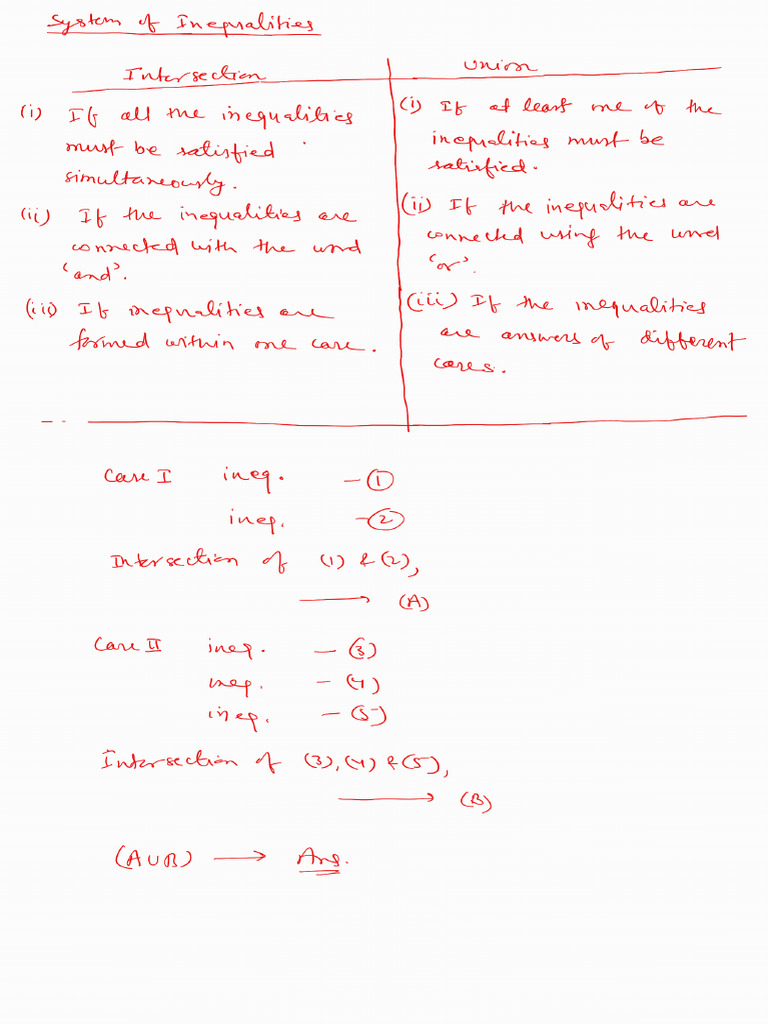 System of Inequalities
Intersection
(i) If all the inequalities
must be satisfied
simultaneously.
(ii) If the inequalities are
connected with the word
'and'.
(iii) If inequalities are
formed within one case.
Union
(i) If at least one of the
inequalities must be
satisfied.
(ii) If the inequalities are
connected using the word
'or'.
(iii) If the inequalities
are answers of different
cases.
Case I ineq. - ①
ineq. - ②
Intersection of (1) & (2),
→ (A)
Case II ineq. - (3)
ineq. - (4)
ineq. - (5)
Intersection of (3), (4) & (5),
→ (B)
(A∪B) → Ans.